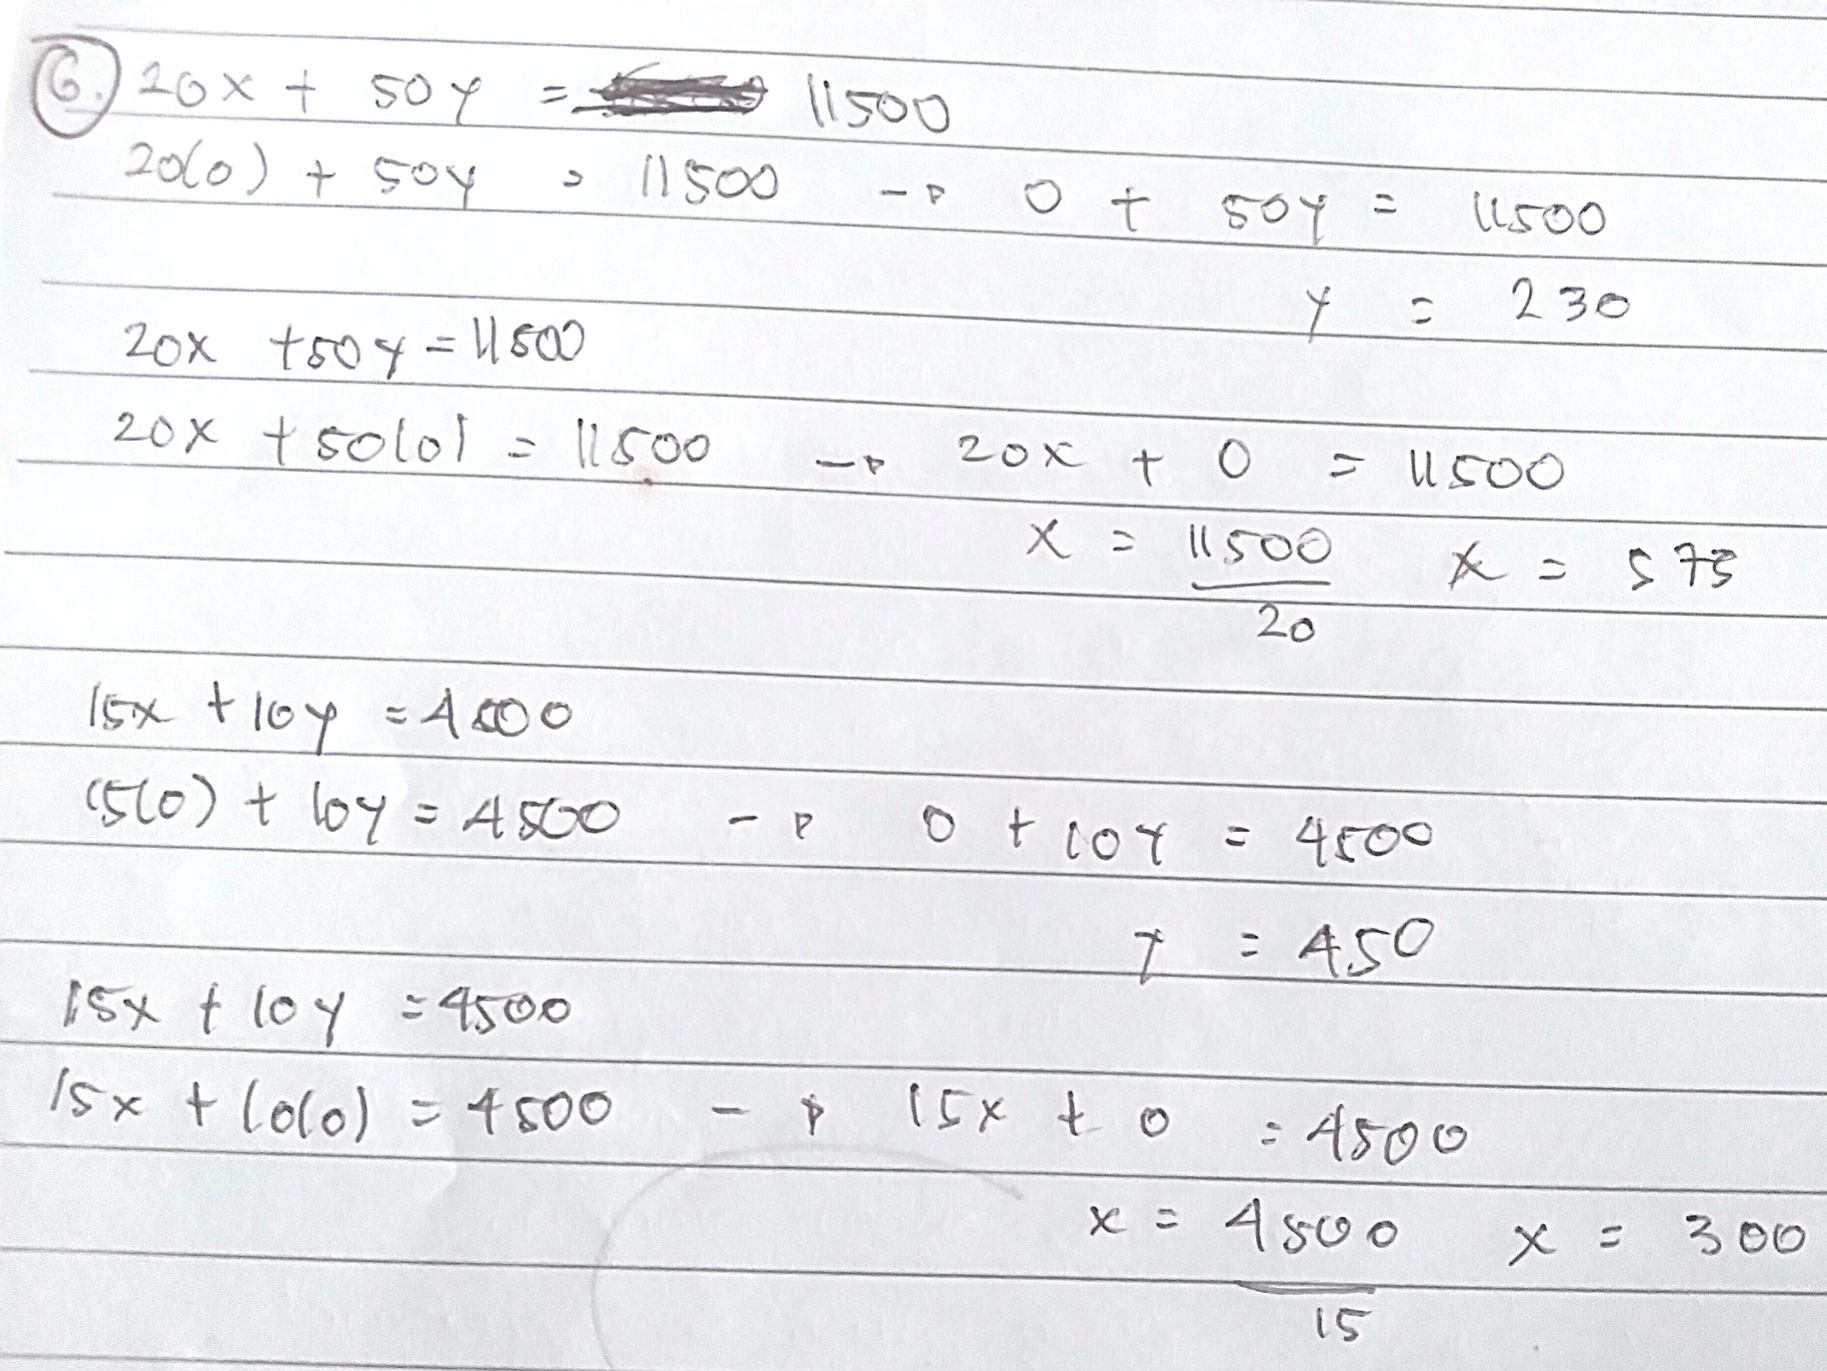 6. 20x + 50y = 11500
20(0) + 50y = 11500 → 0 + 50y = 11500
y = 230
20x + 50y = 11500
20x + 50(0) = 11500 → 20x + 0 = 11500
x = 11500 x = 575
20
15x + 10y = 4500
15(0) + 10y = 4500 → 0 + 10y = 4500
y = 450
15x + 10y = 4500
15x + 10(0) = 4500 → 15x + 0 = 4500
x = 4500 x = 300
15